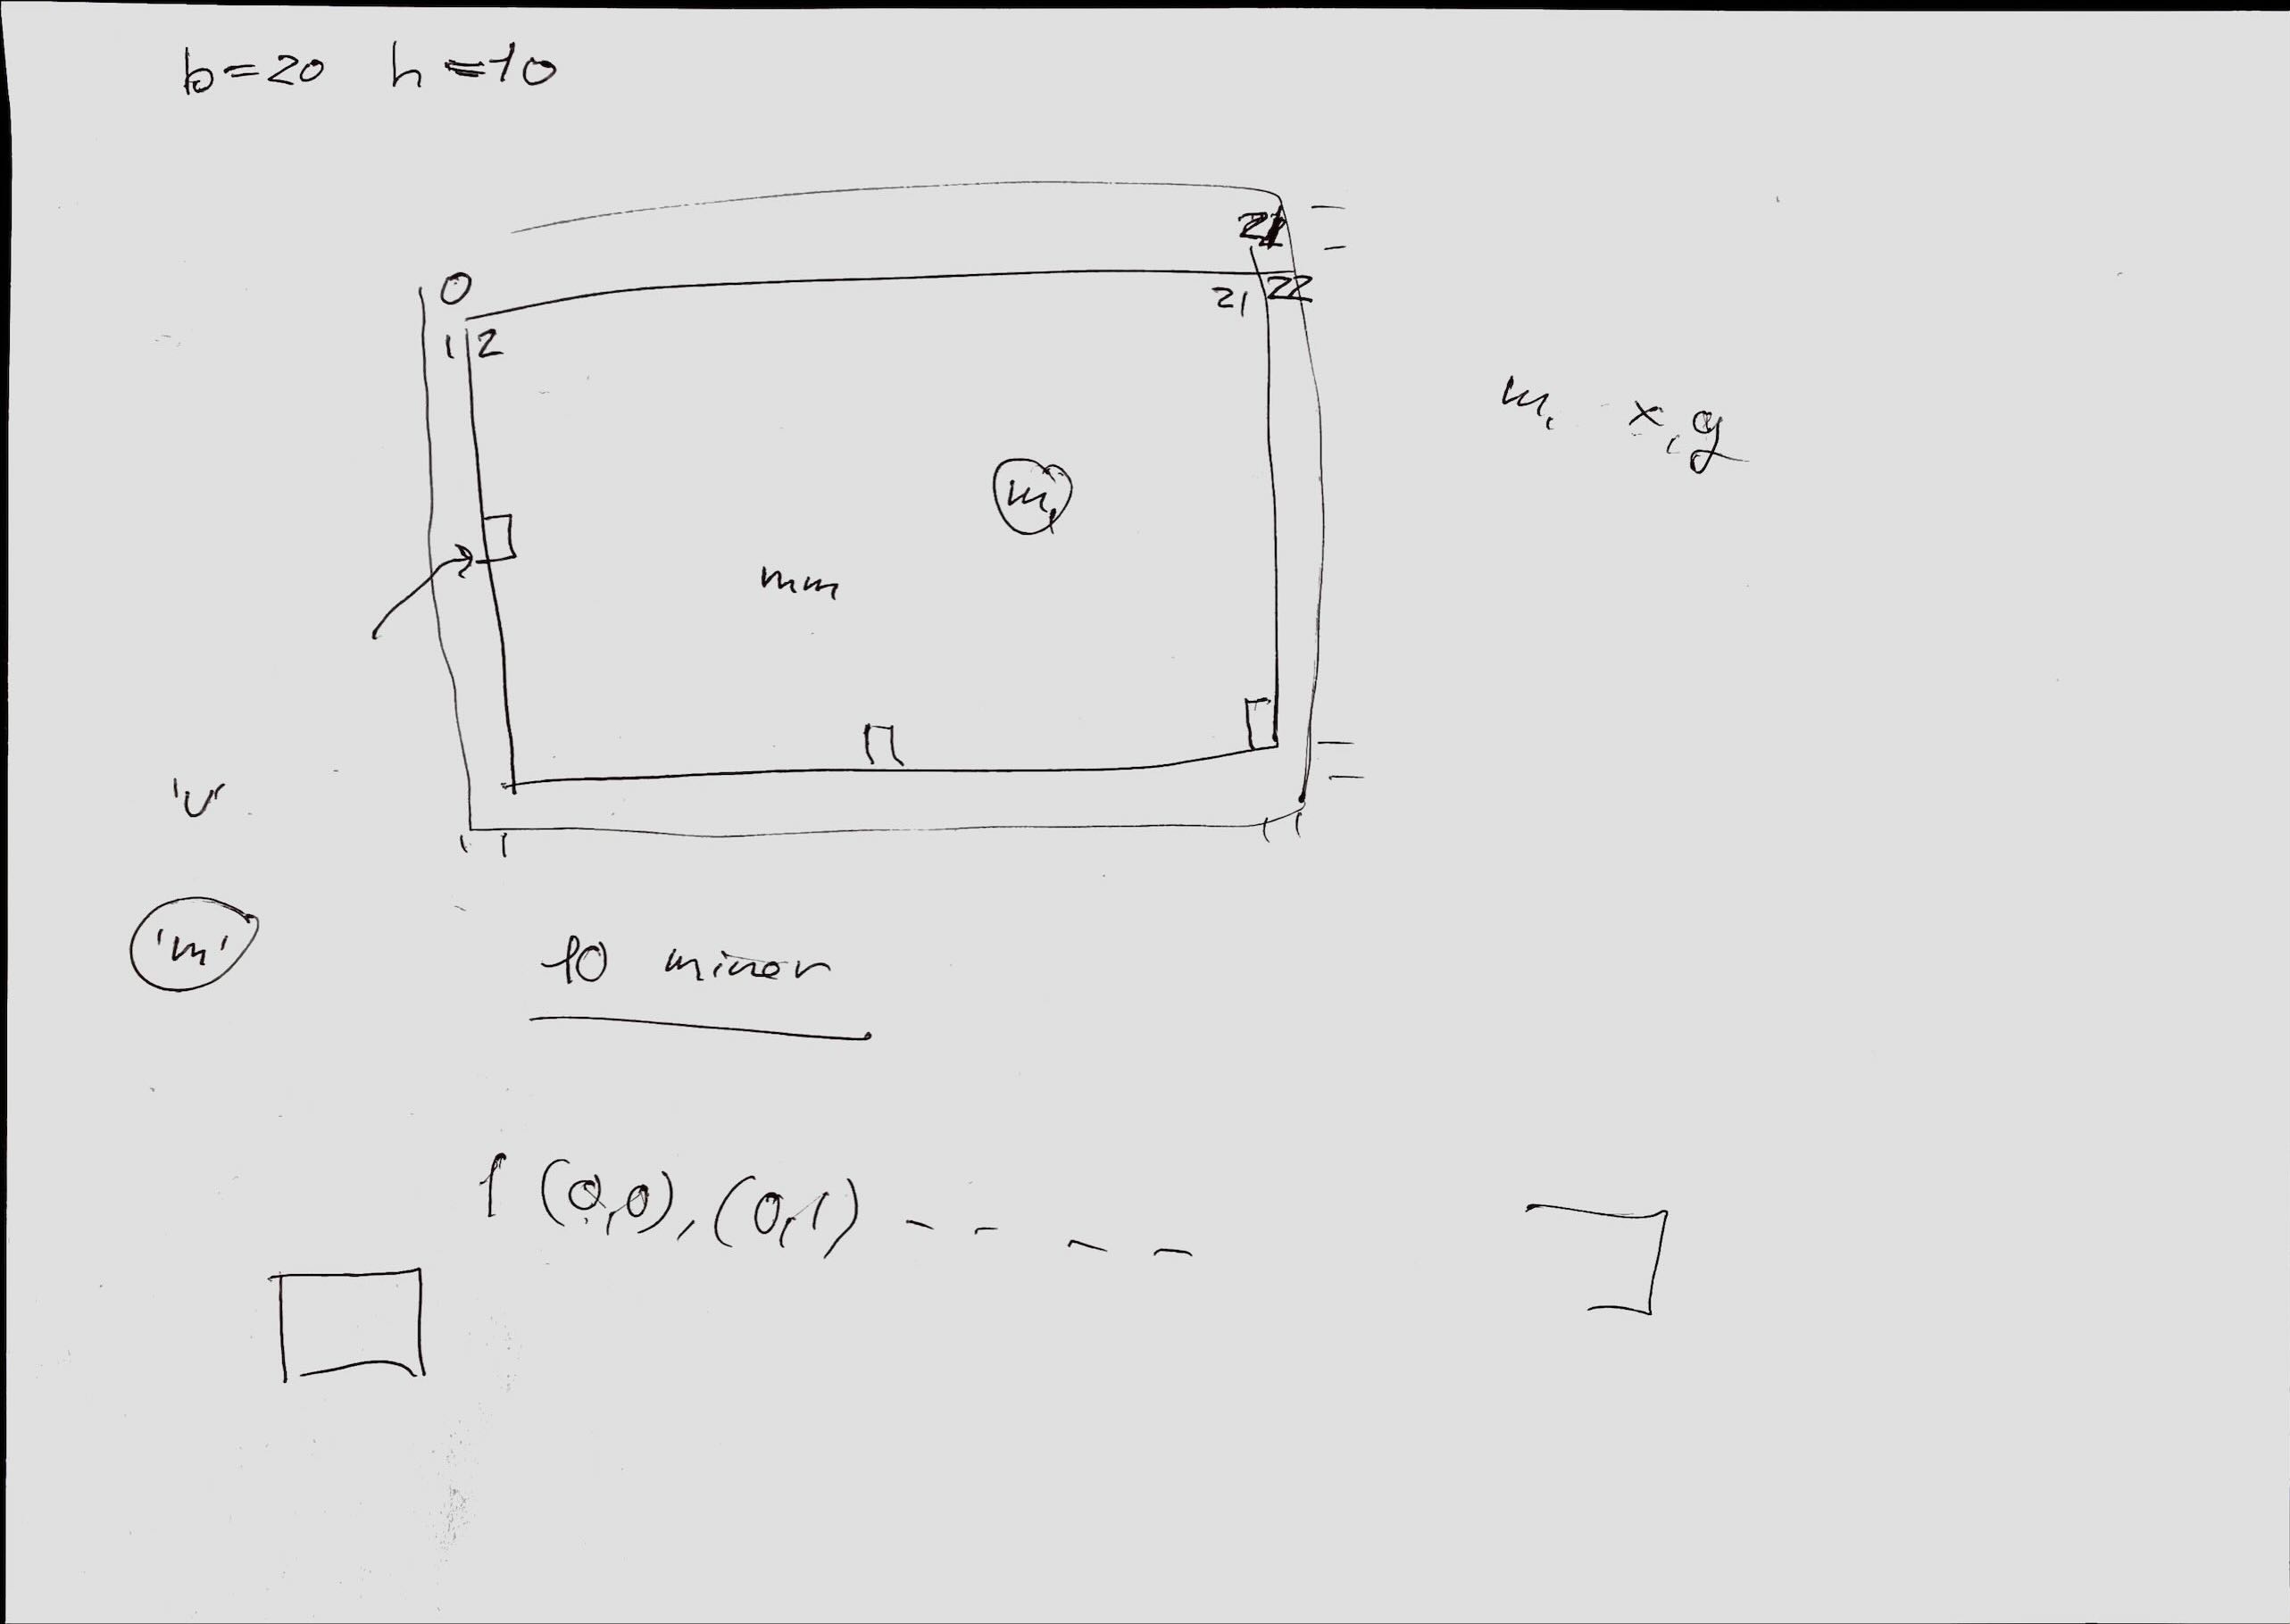 b=20 h=10
21
0
21 22
1 2
m, x,y
m,
mm
'v'
'm'
10 minor
1 (0,0), (0,1) - - - -